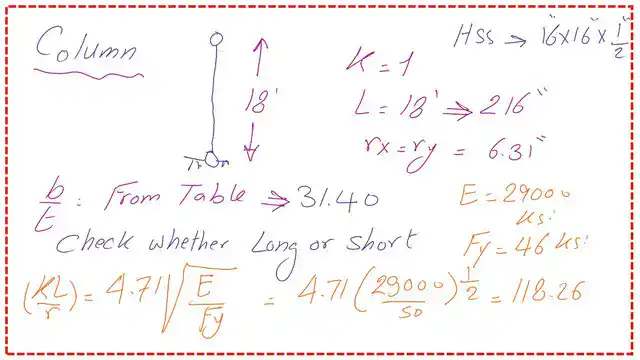 Column
Hss → 16"x16"x1/2"
K = 1
18'
L = 18' ⇒ 216"
rx = ry = 6.31"
b/t : From Table ⇒ 31.40
E = 29000 ksi
Check whether Long or short
Fy = 46 ksi
(KL/r) = 4.71√(E/Fy) = 4.71(29000/50)^1/2 = 118.26